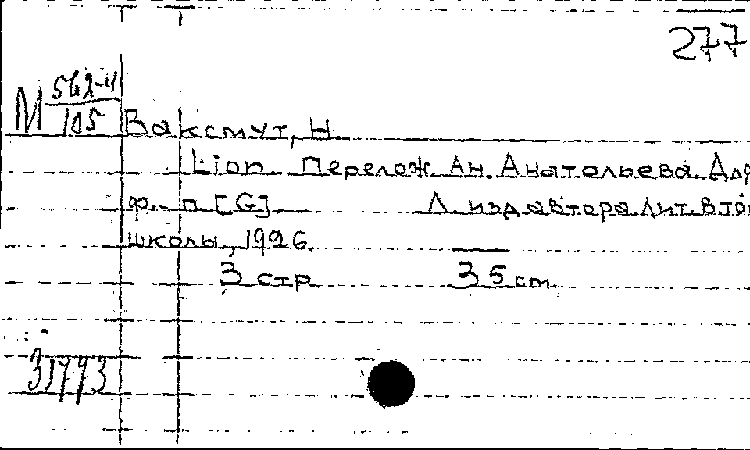 277
М 562-4/105
Ваксмут, Н.
Lion. Перелож Ан. Анатольева. Для
ф.-п [G]. Л. изд автора. Лит. Втой
школы, 1926.
3 стр. 35 cm.
31793